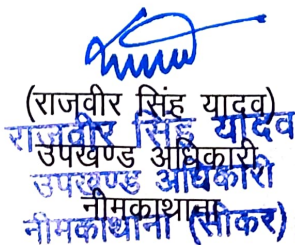 (राजवीर सिंह यादव)
राजवीर सिंह यादव
उपखण्ड अधिकारी
उपखण्ड अधिकारी
नीमकाथाना
नीमकाथाना (सीकर)